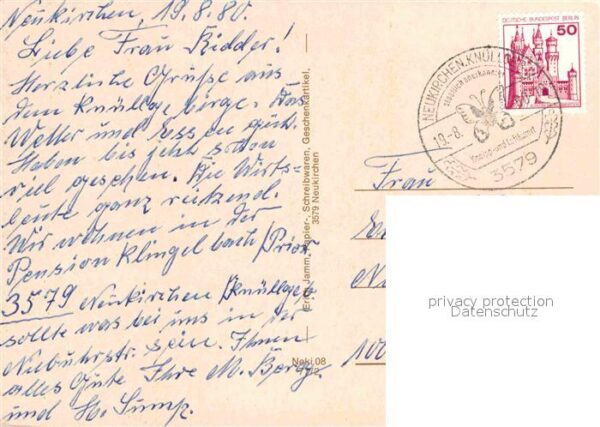 Neukirchen, 19.8.80.
Liebe Frau Ridder!
Herzliche Grüße aus
dem Knüllgebirge. Das
Wetter und Essen gut.
Haben bis jetzt schon
viel gesehen. Die Wirts-
leute ganz reizend.
Wir wohnen in der
Pension Klingelbach
3579 Neukirchen
sollte was bei uns in der
Niebuhrstr. sein. Ihnen
alles Gute Ihre M.
und H.
Papier-, Schreibwaren, Geschenkartikel,
3579 Neukirchen
DEUTSCHE BUNDESPOST BERLIN
50
NEUKIRCHEN, KNÜLL
19.-8.
3579
Frau
100
privacy protection
Datenschutz